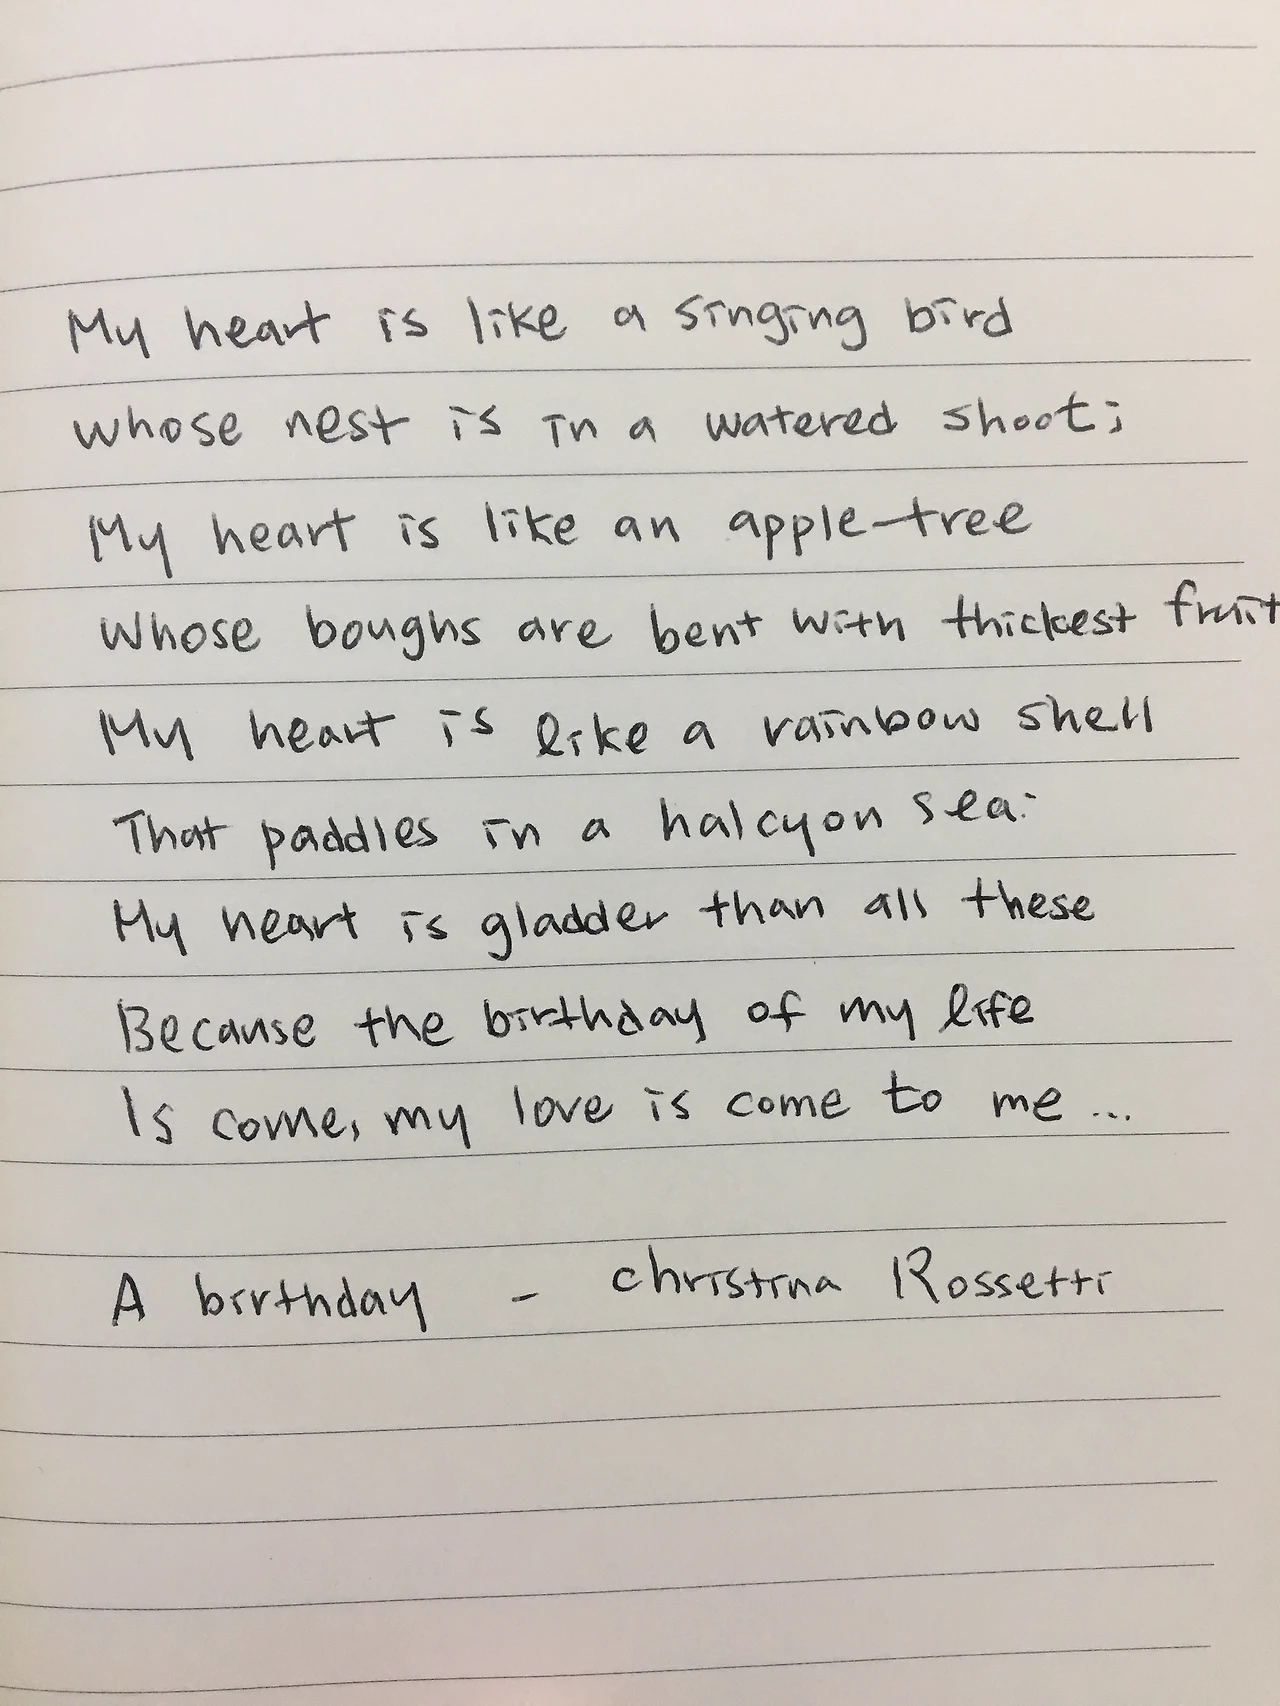 My heart is like a singing bird
whose nest is in a watered shoot;
My heart is like an apple-tree
Whose boughs are bent with thickest fruit
My heart is like a rainbow shell
That paddles in a halcyon sea:
My heart is gladder than all these
Because the birthday of my life
Is come, my love is come to me ...
A birthday - christina Rossetti